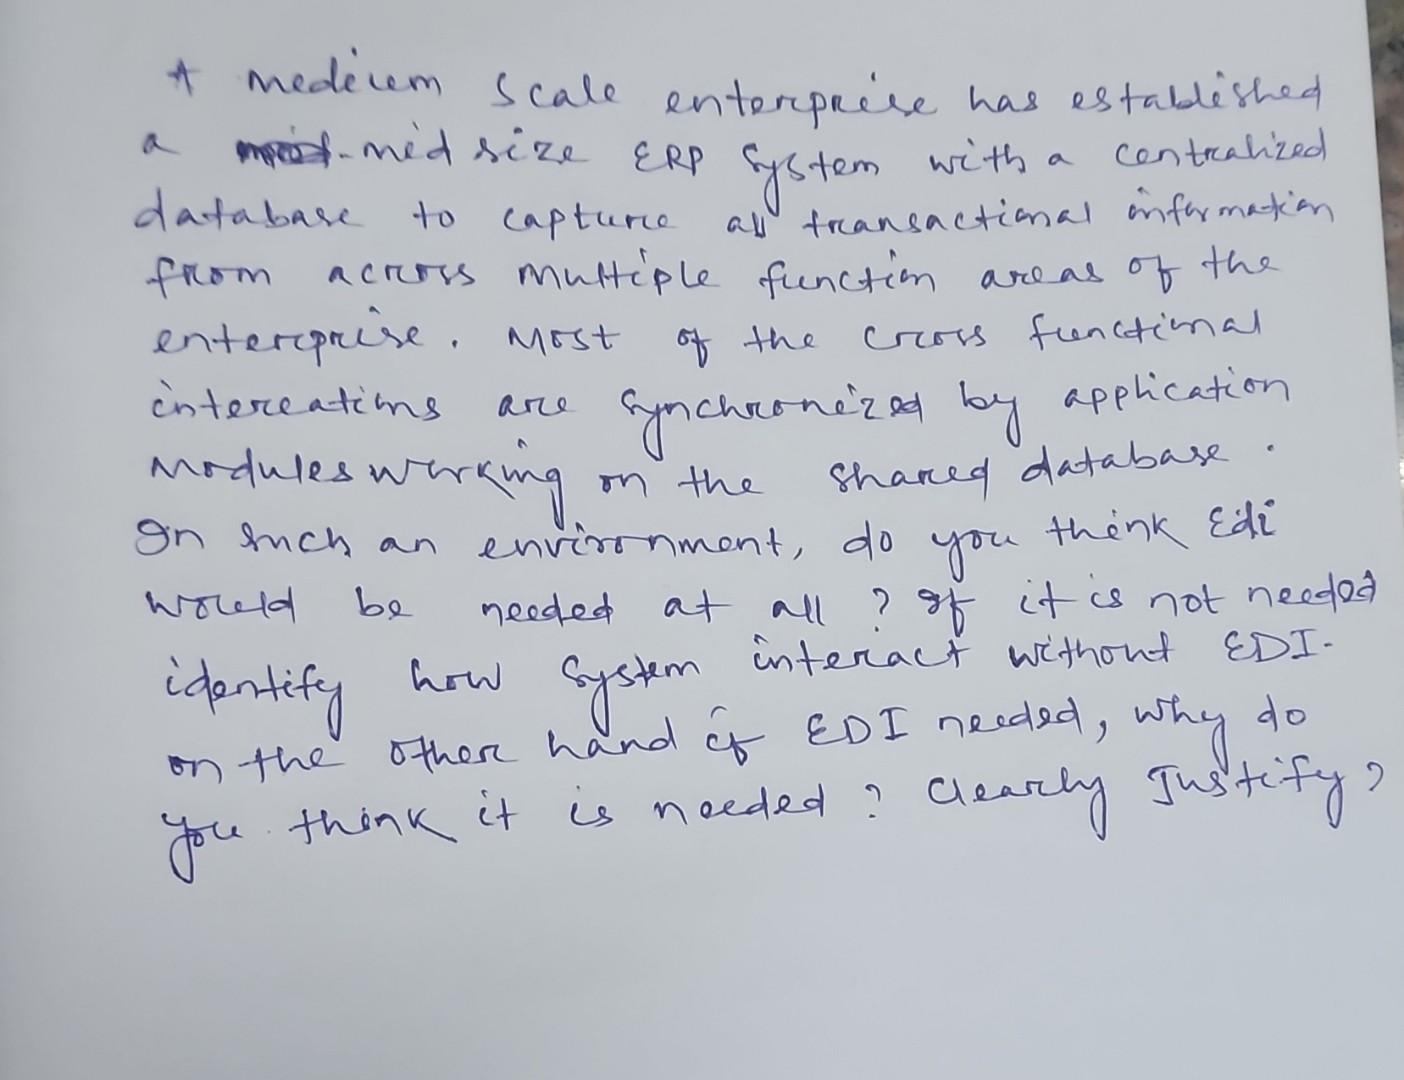 A medium scale enterprise has established
a mid size ERP System with a centralized
database to capture all transactional information
from across multiple function areas of the
enterprise. Most of the cross functional
intereations are synchronized by application
modules working on the shared database.
In such an environment, do you think Edi
would be needed at all ? If it is not needed
identify how System interact without EDI.
on the other hand if EDI needed, why do
you think it is needed ? Clearly Justify ?